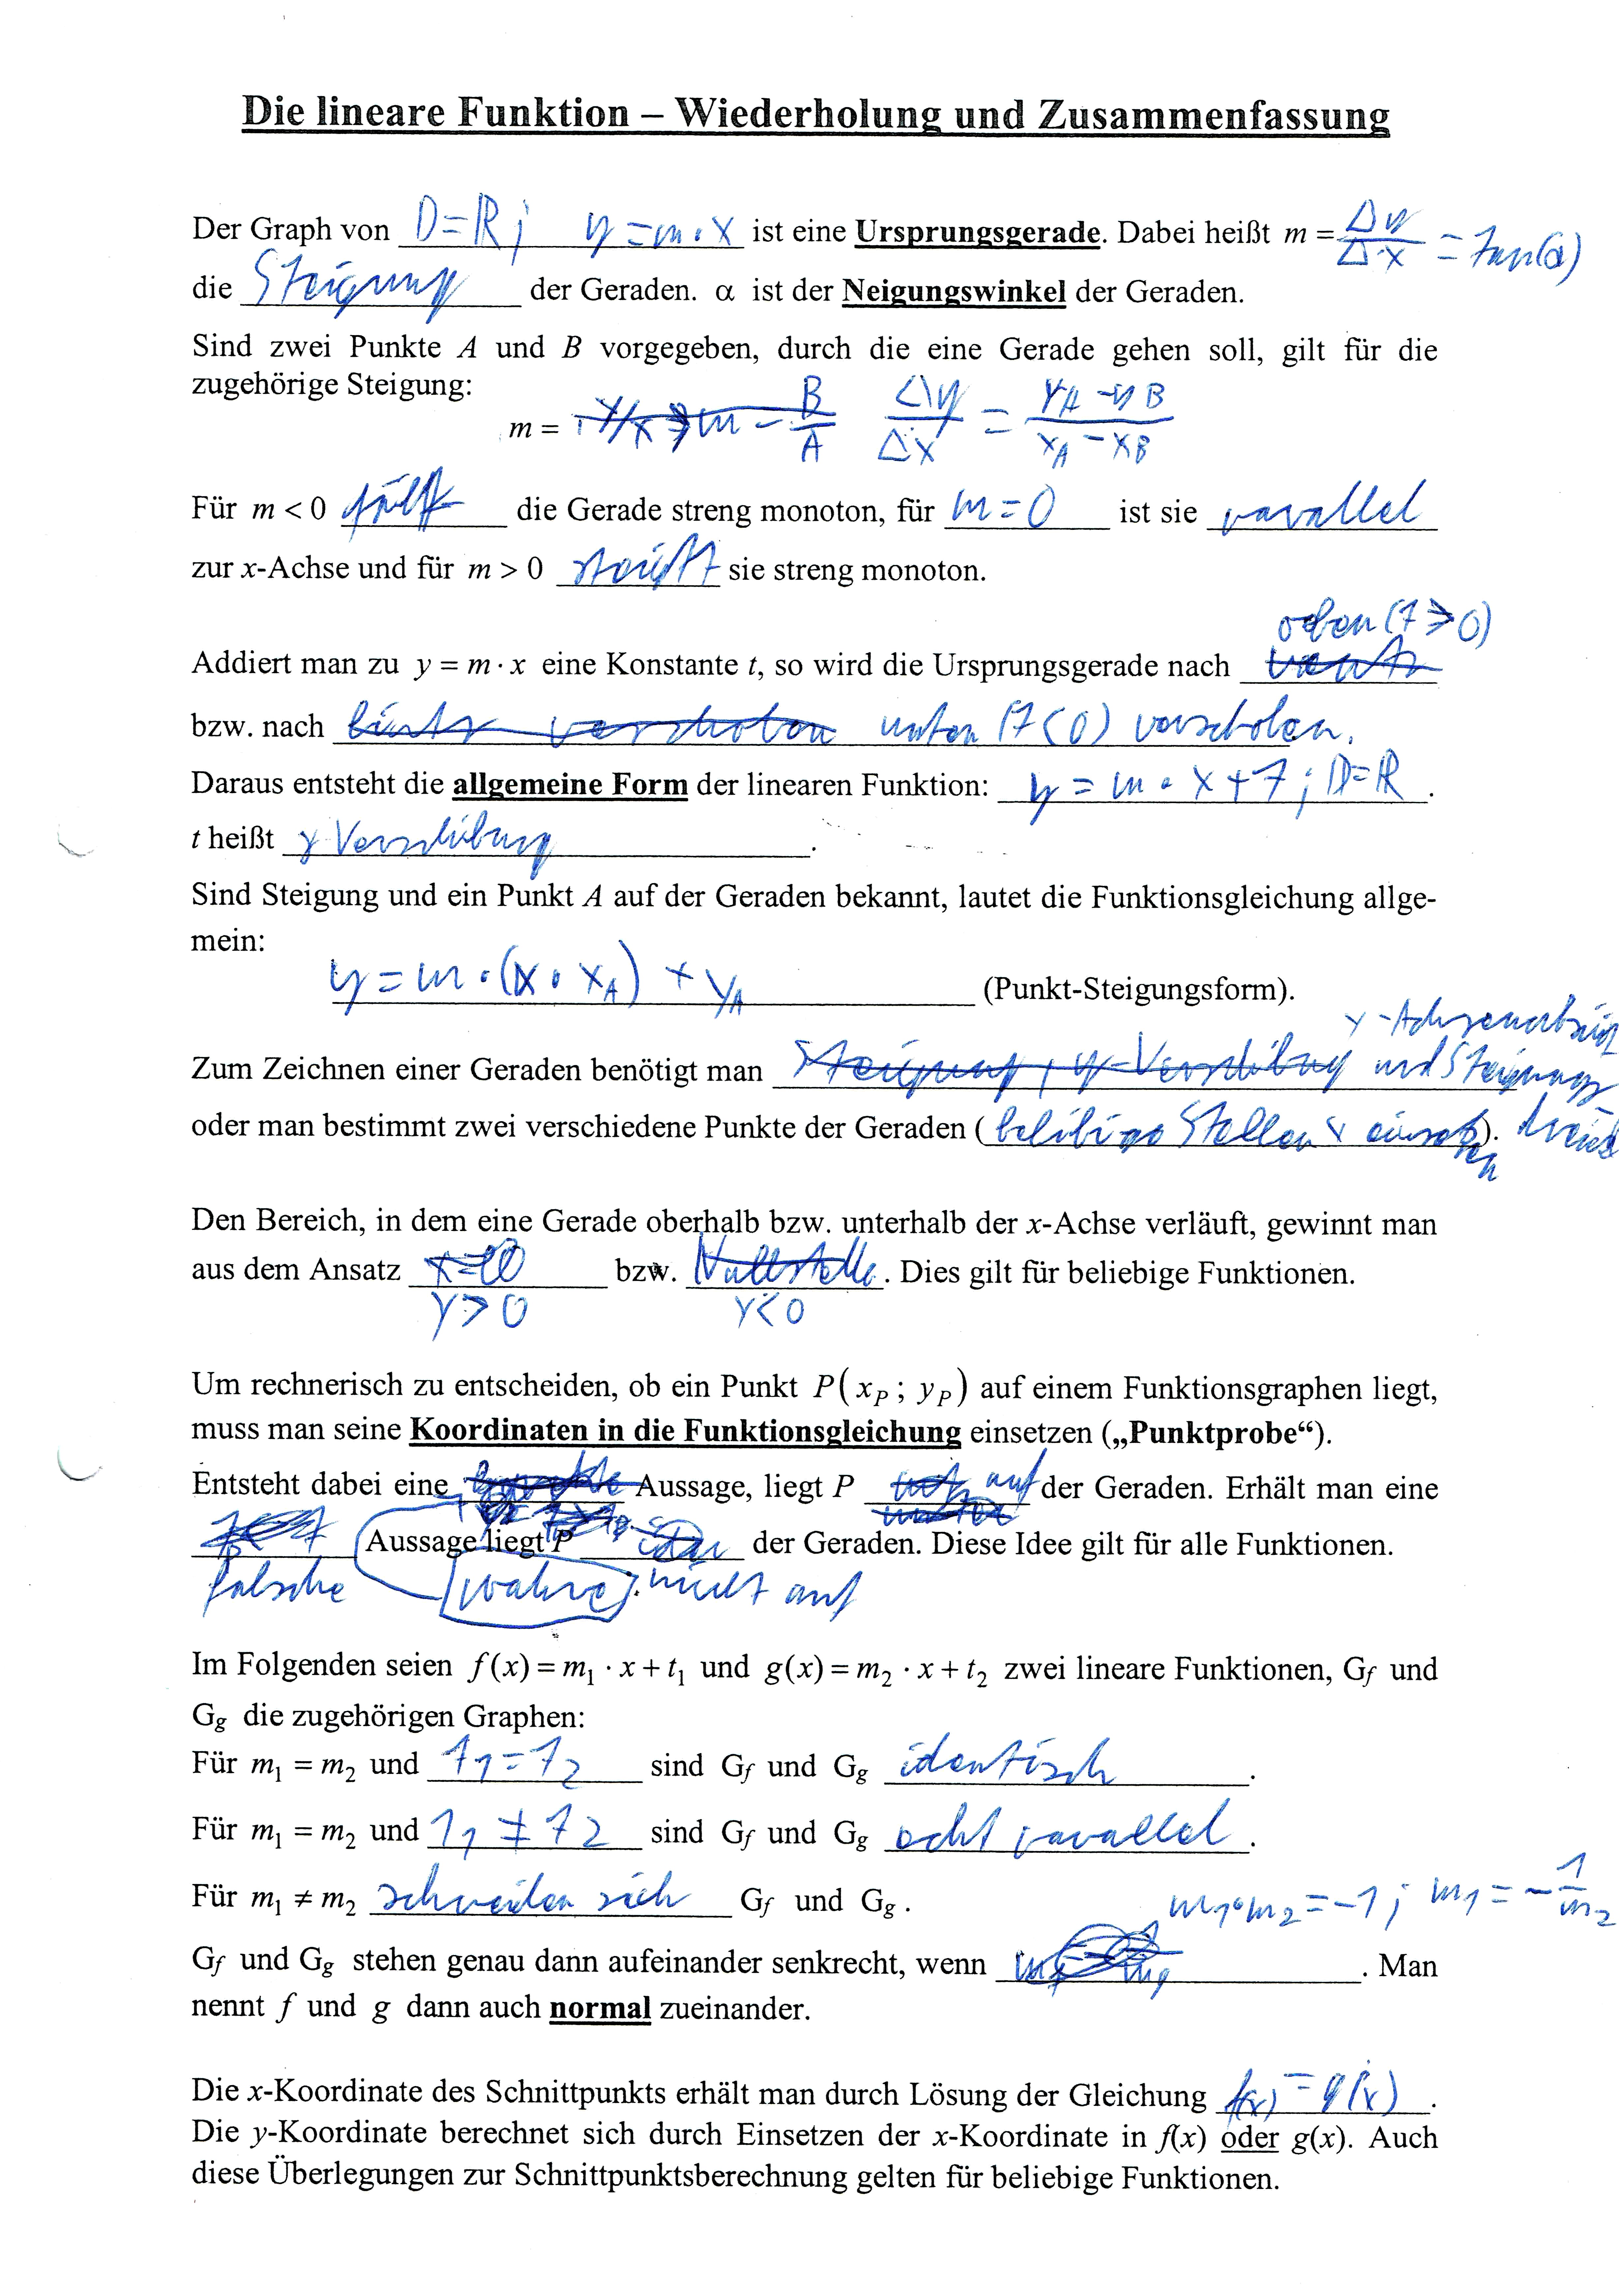 Die lineare Funktion – Wiederholung und Zusammenfassung
Der Graph von D=ℝ; y = m · x ist eine Ursprungsgerade. Dabei heißt m = Δy/Δx = tan(α)
die Steigung der Geraden. α ist der Neigungswinkel der Geraden.
Sind zwei Punkte A und B vorgegeben, durch die eine Gerade gehen soll, gilt für die
zugehörige Steigung:
m = Δy/Δx = (yA - yB)/(xA - xB)
Für m < 0 fällt die Gerade streng monoton, für m = 0 ist sie parallel
zur x-Achse und für m > 0 steigt sie streng monoton.
oben (t > 0)
Addiert man zu y = m · x eine Konstante t, so wird die Ursprungsgerade nach
bzw. nach links verschoben unten (t < 0) verschoben.
Daraus entsteht die allgemeine Form der linearen Funktion: y = m · x + t; D=ℝ.
t heißt y Verschibung.
Sind Steigung und ein Punkt A auf der Geraden bekannt, lautet die Funktionsgleichung allge-
mein:
y = m · (x · xA) + yA (Punkt-Steigungsform).
y-Achsenabschnitt
Zum Zeichnen einer Geraden benötigt man Steigung, y-Verschibung und Steigungs
oder man bestimmt zwei verschiedene Punkte der Geraden (belibige Stellen x einsetzen). dreieck
Den Bereich, in dem eine Gerade oberhalb bzw. unterhalb der x-Achse verläuft, gewinnt man
aus dem Ansatz bzw. Nullstelle. Dies gilt für beliebige Funktionen.
y > 0 y < 0
Um rechnerisch zu entscheiden, ob ein Punkt P(xP ; yP) auf einem Funktionsgraphen liegt,
muss man seine Koordinaten in die Funktionsgleichung einsetzen („Punktprobe“).
Entsteht dabei eine Aussage, liegt P auf der Geraden. Erhält man eine
Aussage liegt P der Geraden. Diese Idee gilt für alle Funktionen.
falsche wahre nicht auf
Im Folgenden seien f(x) = m1 · x + t1 und g(x) = m2 · x + t2 zwei lineare Funktionen, Gf und
Gg die zugehörigen Graphen:
Für m1 = m2 und t1 = t2 sind Gf und Gg identisch.
Für m1 = m2 und t1 ≠ t2 sind Gf und Gg echt parallel.
Für m1 ≠ m2 schneiden sich Gf und Gg.
m1·m2 = -1; m1 = -1/m2
Gf und Gg stehen genau dann aufeinander senkrecht, wenn . Man
nennt f und g dann auch normal zueinander.
Die x-Koordinate des Schnittpunkts erhält man durch Lösung der Gleichung f(x) = g(x).
Die y-Koordinate berechnet sich durch Einsetzen der x-Koordinate in f(x) oder g(x). Auch
diese Überlegungen zur Schnittpunktsberechnung gelten für beliebige Funktionen.